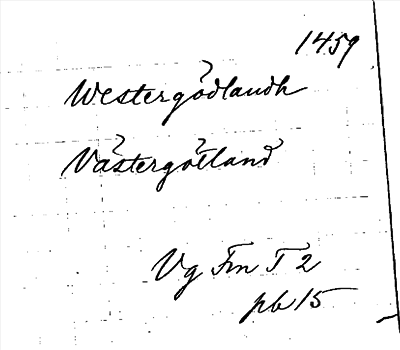 1459
Westergödlandh
Västergötland
Vg Fm T 2
pb 15